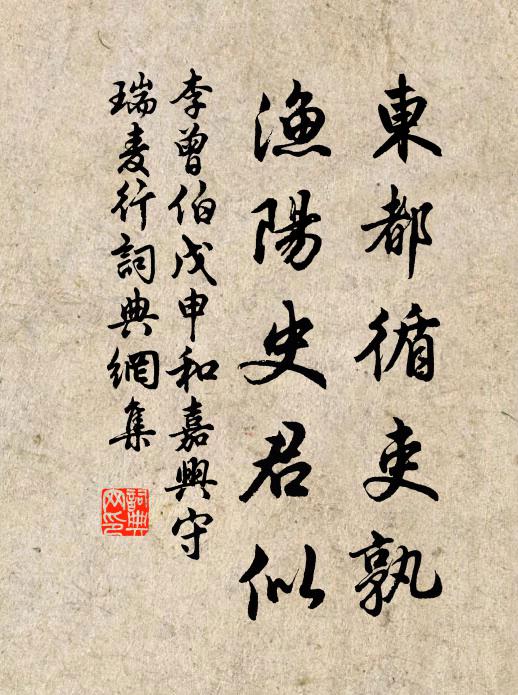 東都循吏孰
漁陽史君似
李曾伯戊申和嘉興守
瑞麦行詞典網集
詞典
网印